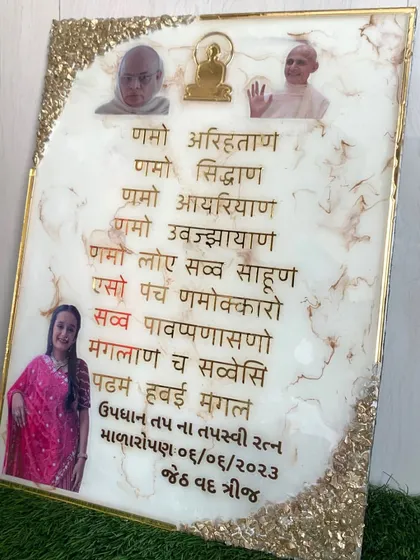 णमो अरिहताण
णमो सिद्धाण
णमो आयरियाण
णमो उवज्झायाण
णमो लोए सव्व साहूण
एसो पंच णमोक्कारो
सव्व पावप्पणासणो
मंगलाण च सव्वेसि
पढम हवई मंगल
ઉપધાન તપ ના તપસ્વી રત્ન
માળારોપણ:૦૬/૦૬/૨૦૨૩
જેઠ વદ ત્રીજ